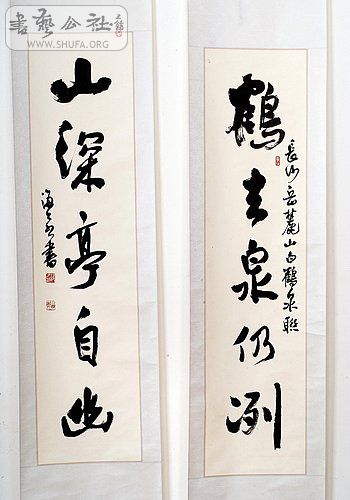 鶴去泉仍冽
長沙岳麓山白鶴泉聯
山深亭自幽
書藝公社
WWW.SHUFA.ORG